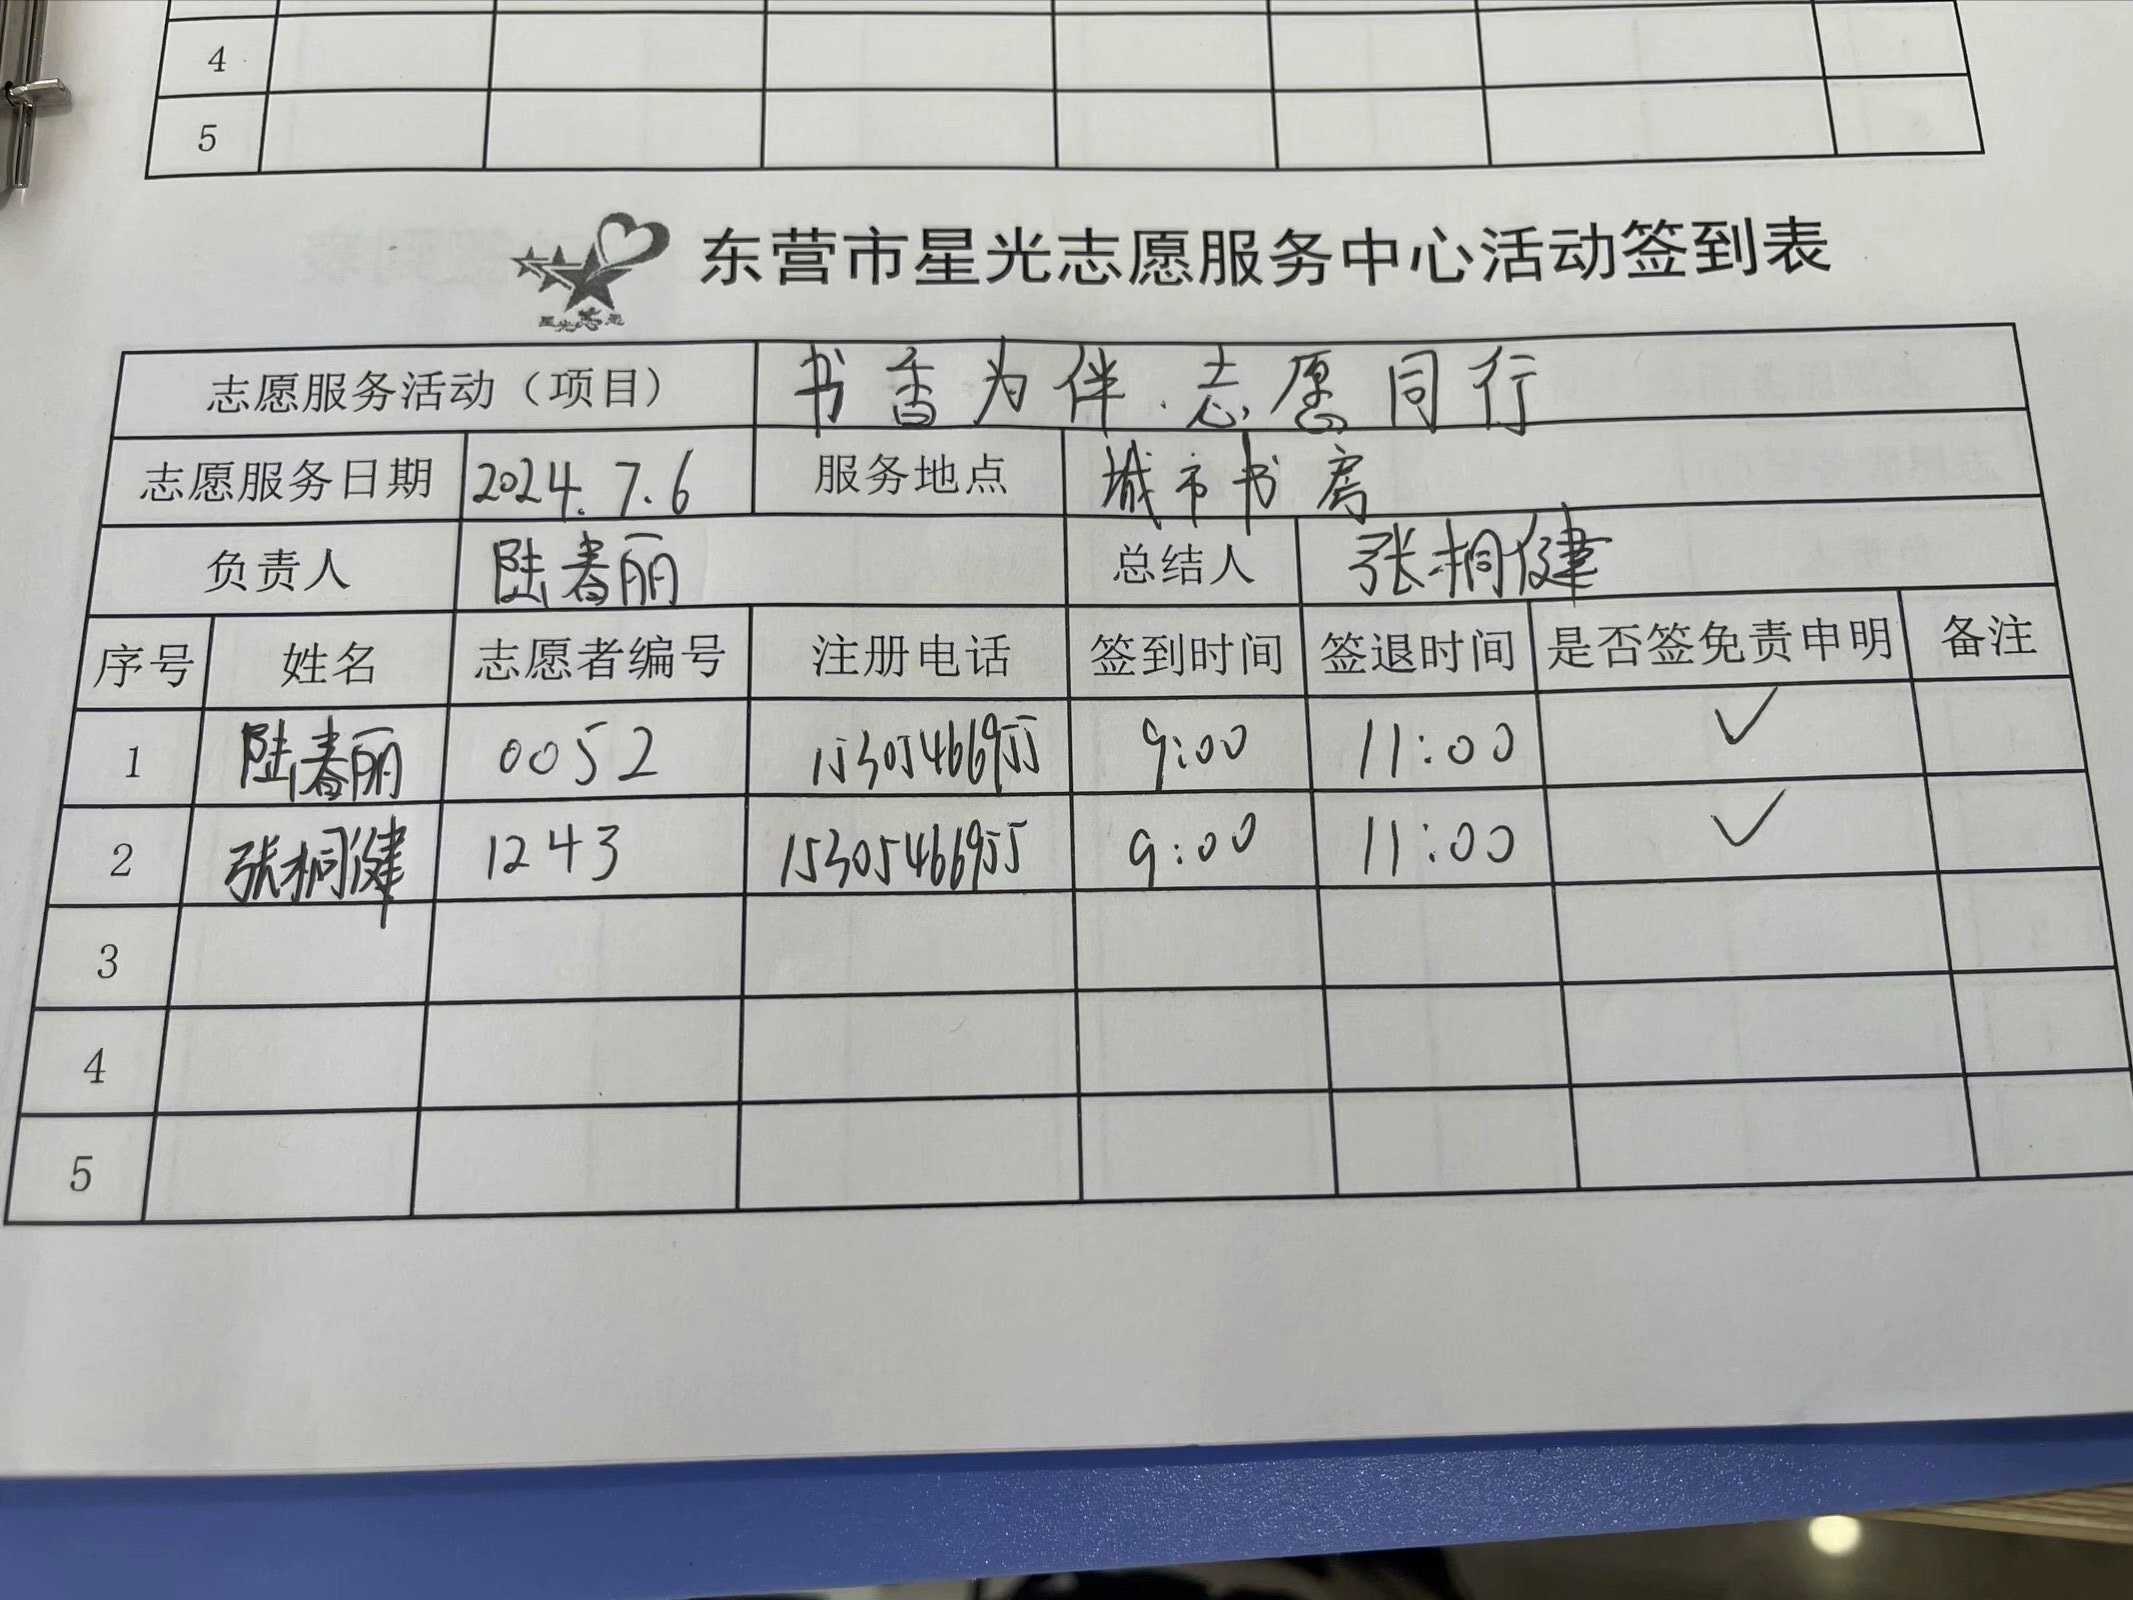 4
5
星光志愿
东营市星光志愿服务中心活动签到表
志愿服务活动（项目） 书香为伴.志愿同行
志愿服务日期 2024.7.6 服务地点 城市书房
负责人 陆春丽 总结人 张桐健
序号 姓名 志愿者编号 注册电话 签到时间 签退时间 是否签免责申明 备注
1 陆春丽 0052 15305466955 9:00 11:00 ✓
2 张桐健 1243 15305466955 9:00 11:00 ✓
3
4
5